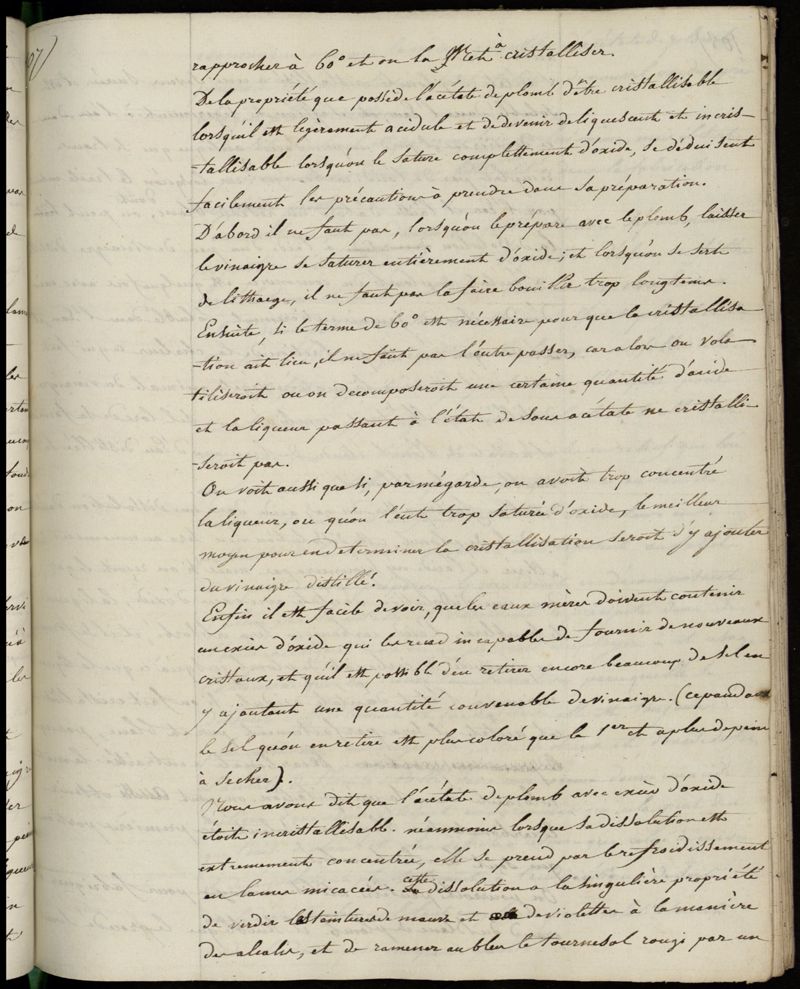 rapprocher à 60° et on la met à cristalliser.
De la propriété que possède l'acétate de plomb d'être cristallisable
lorsqu'il est légèrement acidule et de devenir déliquescent et incris-
-tallisable lorsqu'on le sature complettement d'oxide, se déduisent
facilement les précautions à prendre dans sa préparation.
D'abord il ne faut pas, lorsqu'on le prépare avec le plomb, laisser
le vinaigre se saturer entièrement d'oxide; et lorsqu'on se sert
de litharge, il ne faut pas la faire bouillir trop longtems.
Ensuite, si le terme de 60° est nécessaire pour que la cristallisa
-tion ait lieu, il ne faut pas l'outre passer, car alors on vola
tiliseroit ou on decomposeroit une certaine quantité d'acide
et la liqueur passant à l'état de sous acétate ne cristalli-
-seroit pas.
On voit aussi que si, par mégarde, on avoit trop concentré
la liqueur, ou qu'on l'eut trop saturée d'oxide, le meilleur
moyen pour en determiner la cristallisation seroit d'y ajouter
du vinaigre distillé.
Enfin il est facile de voir, que les eaux mères doivent contenir
un excès d'oxide qui les rend incapables de fournir de nouveaux
cristaux, et qu'il est possible d'en retirer encore beaucoup de sel en
y ajoutant une quantité convenable de vinaigre. (cependant
le sel qu'on en retire est plus coloré que le 1er et a plus de peine
à secher).
Nous avons dit que l'acétate de plomb avec excès d'oxide
étoit incristallisable. néanmoins lorsque sa dissolution est
extremement concentrée, elle se prend par le refroidissement
en lames micacées. cette dissolution a la singulière propriété
de verdir les teintures de mauve et de violettes à la manière
des alcalis, et de ramener au bleu le tournesol rougi par un